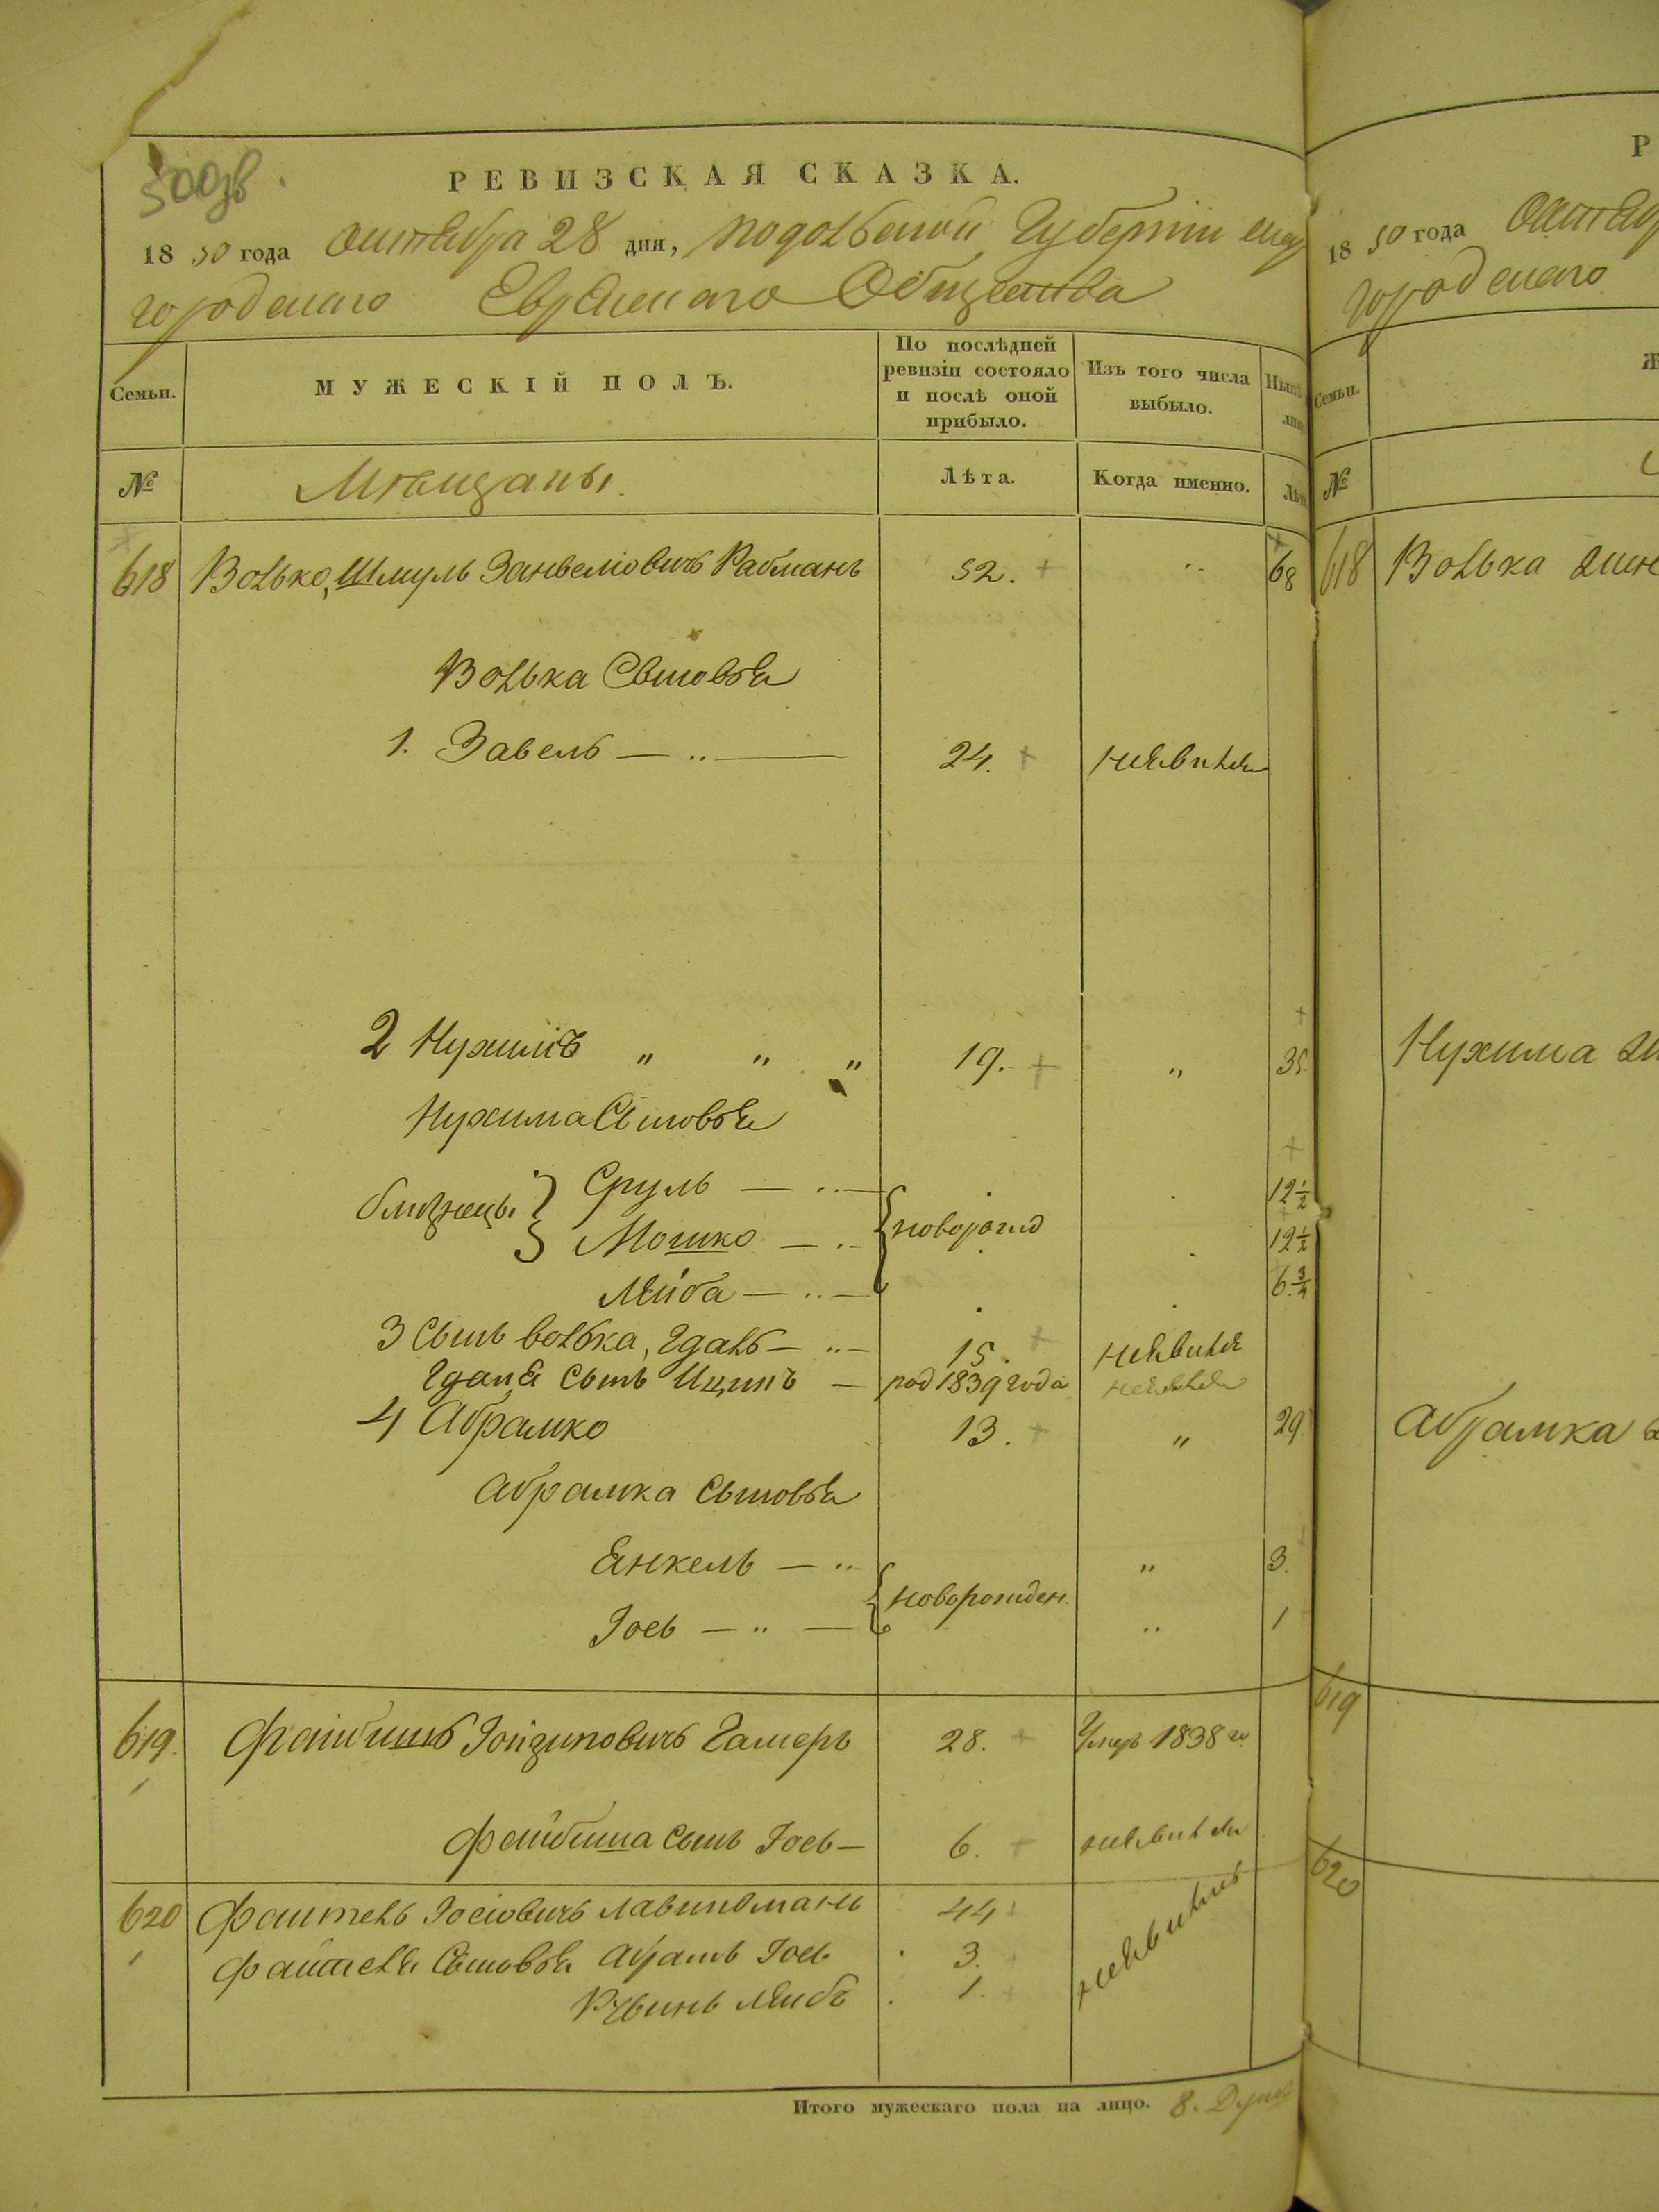 500об.
РЕВИЗСКАЯ СКАЗКА.
18 50 года Октября 28 дня, Подольской Губернии
городскаго Еврейскаго Общества
Семьи.
МУЖЕСКІЙ ПОЛЪ.
По послѣдней ревизіи состояло и послѣ оной прибыло.
Изъ того числа выбыло.
№
Мѣщаны.
Лѣта.
Когда именно.
618 Волько, Шмуль Занвеліовичъ Рабманъ 52. 68
Волька Сыновья
1. Завель — „ — 24. неявился
2 Нухимъ „ „ „ 19. „ 35.
Нухима Сыновья
близнецы } Сруль — „ — 12½
Мошко — „ — { новорожд 12½
Лейба — „ — 6¾
3 Сынъ Волька, Гдаль — „ — 15. неявился
Гдаля сынъ Ицикъ — род 1839 года неявился
4 Абрамко 13. „ 29.
Абрамка Сыновья
Янкель — „ „ 3.
{ новорожден.
Іось — „ — „ 1
619. Файбишъ Гамеръ 28. Умеръ 1838 го.
Файбиша сынъ Іось — 6. неявился
620 Файтель Іосіовичъ 44
Файтеля Сыновья Абрамъ Іось 3.
Рувинъ Лейбъ 1.
неявились
Итого мужескаго пола на лицо. 8. Душъ
18 50 года
городскаго
Семьи.
№
618 Волька
Нухима
Абрамка
619
620